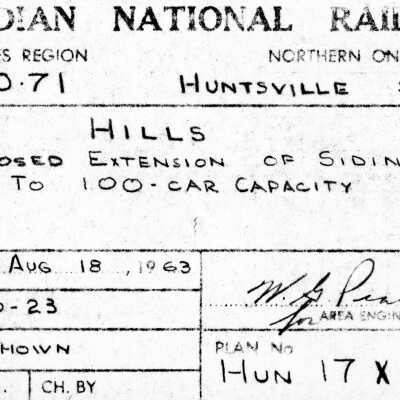 DIAN NATIONAL RAIL
ES REGION NORTHERN ON
0.71 HUNTSVILLE
HILLS
OSED EXTENSION OF SIDIN
TO 100-CAR CAPACITY
AUG 18, 1963
-23
for AREA ENGIN
HOWN PLAN No
HUN 17 X
CH. BY